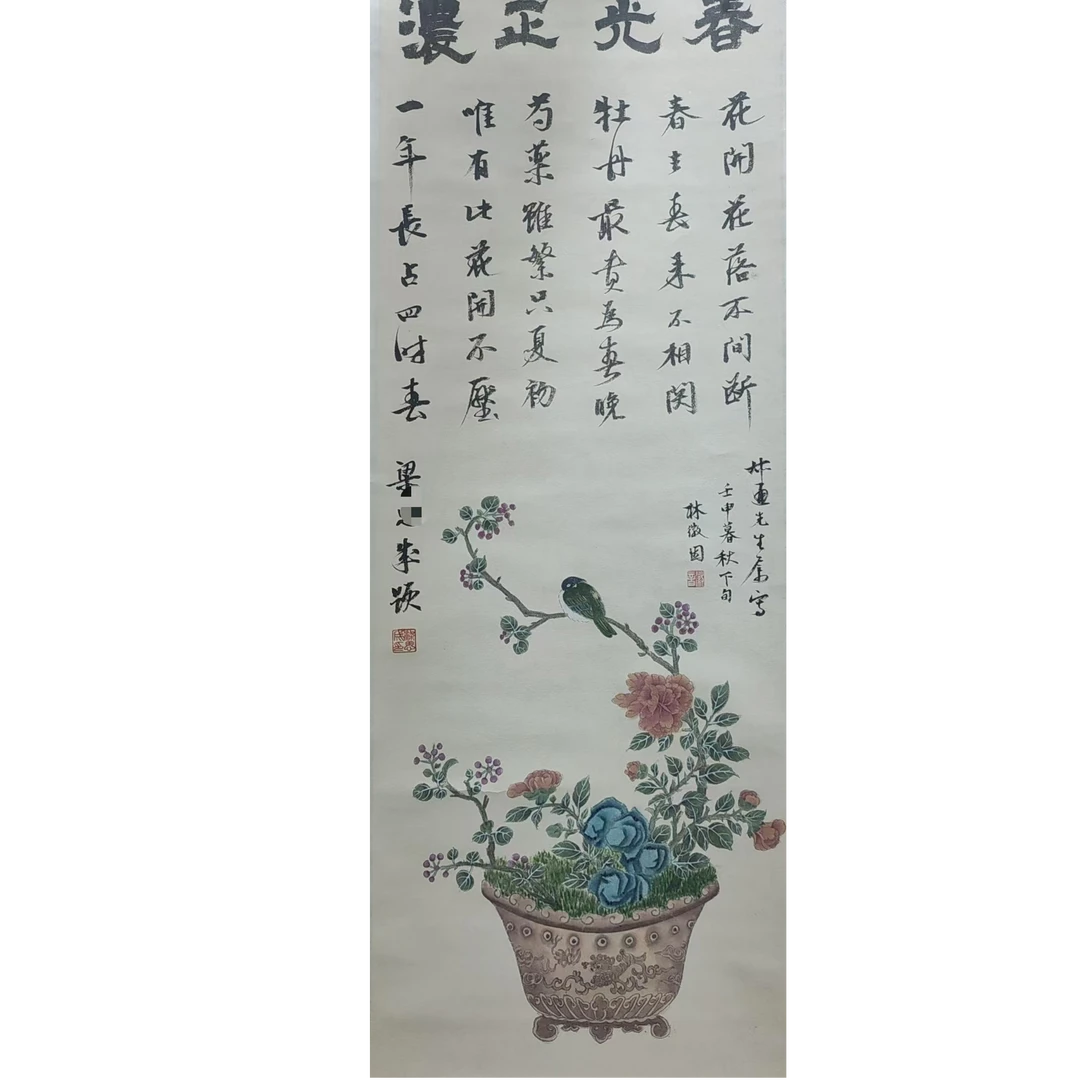 春光正濃
花開花落不間断
春去春来不相関
牡丹最貴為春晚
芍藥雖繁只夏初
唯有此花開不壓
一年長占四时春
梁成题
通先生属写
壬申暮秋下旬
林徽因